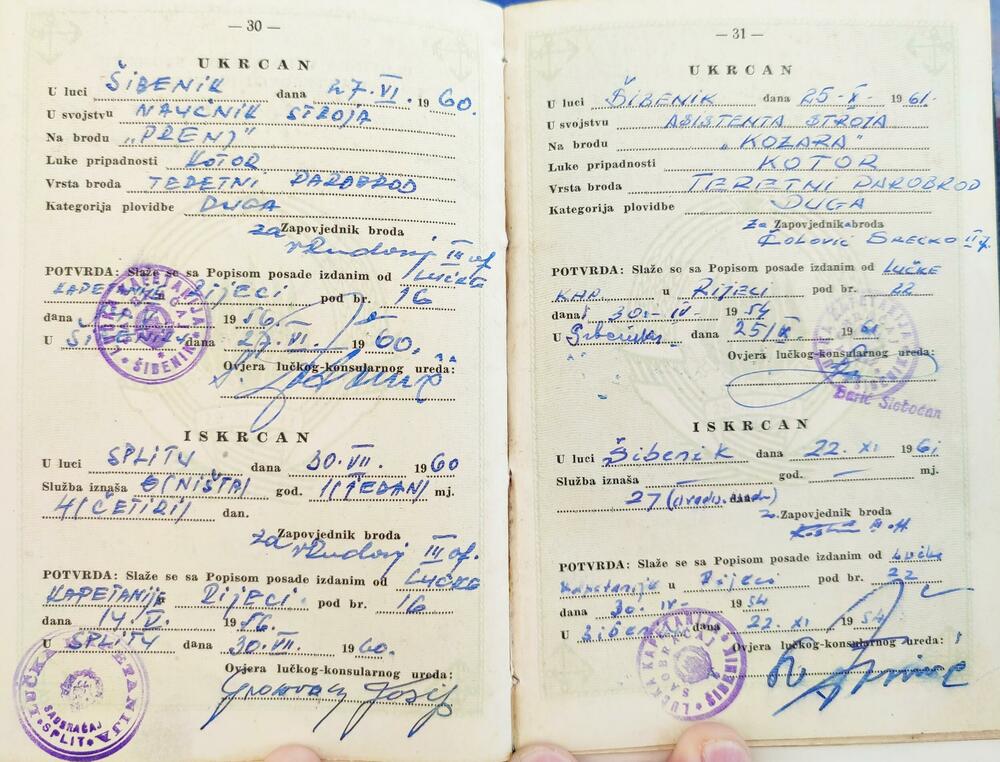 — 30 —
UKRCAN
U luci ŠIBENIK dana 27. VI. 1960.
U svojstvu NAUČNIK STROJA
Na brodu „PRENJ"
Luke pripadnosti KOTOR
Vrsta broda TERETNI PAROBROD
Kategorija plovidbe DUGA
za Zapovjednik broda
III of.
POTVRDA: Slaže se sa Popisom posade izdanim od LUČKA
KAPETANIJA Rijeci pod br. 16
dana 1956.
U ŠIBENIKU dana 27. VI. 1960.
Ovjera lučkog-konsularnog ureda:
LUČKA KAPETANIJA
ŠIBENIK
ISKRCAN
U luci SPLITU dana 30. VII. 1960
Služba iznaša 0(NIŠTA) god. 1(JEDAN) mj.
4(ČETIRI) dan.
Zapovjednik broda
za III of.
POTVRDA: Slaže se sa Popisom posade izdanim od LUČKA
KAPETANIJA Rijeci pod br. 16
dana 14. V. 1956.
U SPLITU dana 30. VII. 1960.
Ovjera lučkog-konsularnog ureda:
Josip
LUČKA KAPETANIJA
SAOBRAĆAJ
SPLIT
— 31 —
UKRCAN
U luci ŠIBENIK dana 25-X- 1961.
U svojstvu ASISTENTA STROJA
Na brodu „KOZARA"
Luke pripadnosti KOTOR
Vrsta broda TERETNI PAROBROD
Kategorija plovidbe DUGA
za Zapovjednik broda
Čolović Srećko II
POTVRDA: Slaže se sa Popisom posade izdanim od LUČKE
KAP. u Rijeci pod br. 22
dana 30-IV- 1954
U Šibeniku dana 25/X 1961
Ovjera lučkog-konsularnog ureda:
LUČKA KAPETANIJA
ŠIBENIK
ISKRCAN
U luci Šibenik dana 22. XI 1961
Služba iznaša — god. — mj.
27 dana
z. Zapovjednik broda
POTVRDA: Slaže se sa Popisom posade izdanim od Lučke
Kapetanije u Rijeci pod br. 22
dana 30. IV- 1954
U Šibeniku dana 22. XI 1954
Ovjera lučkog-konsularnog ureda:
LUČKA KAPETANIJA
SAOBRAĆAJ
ŠIBENIK